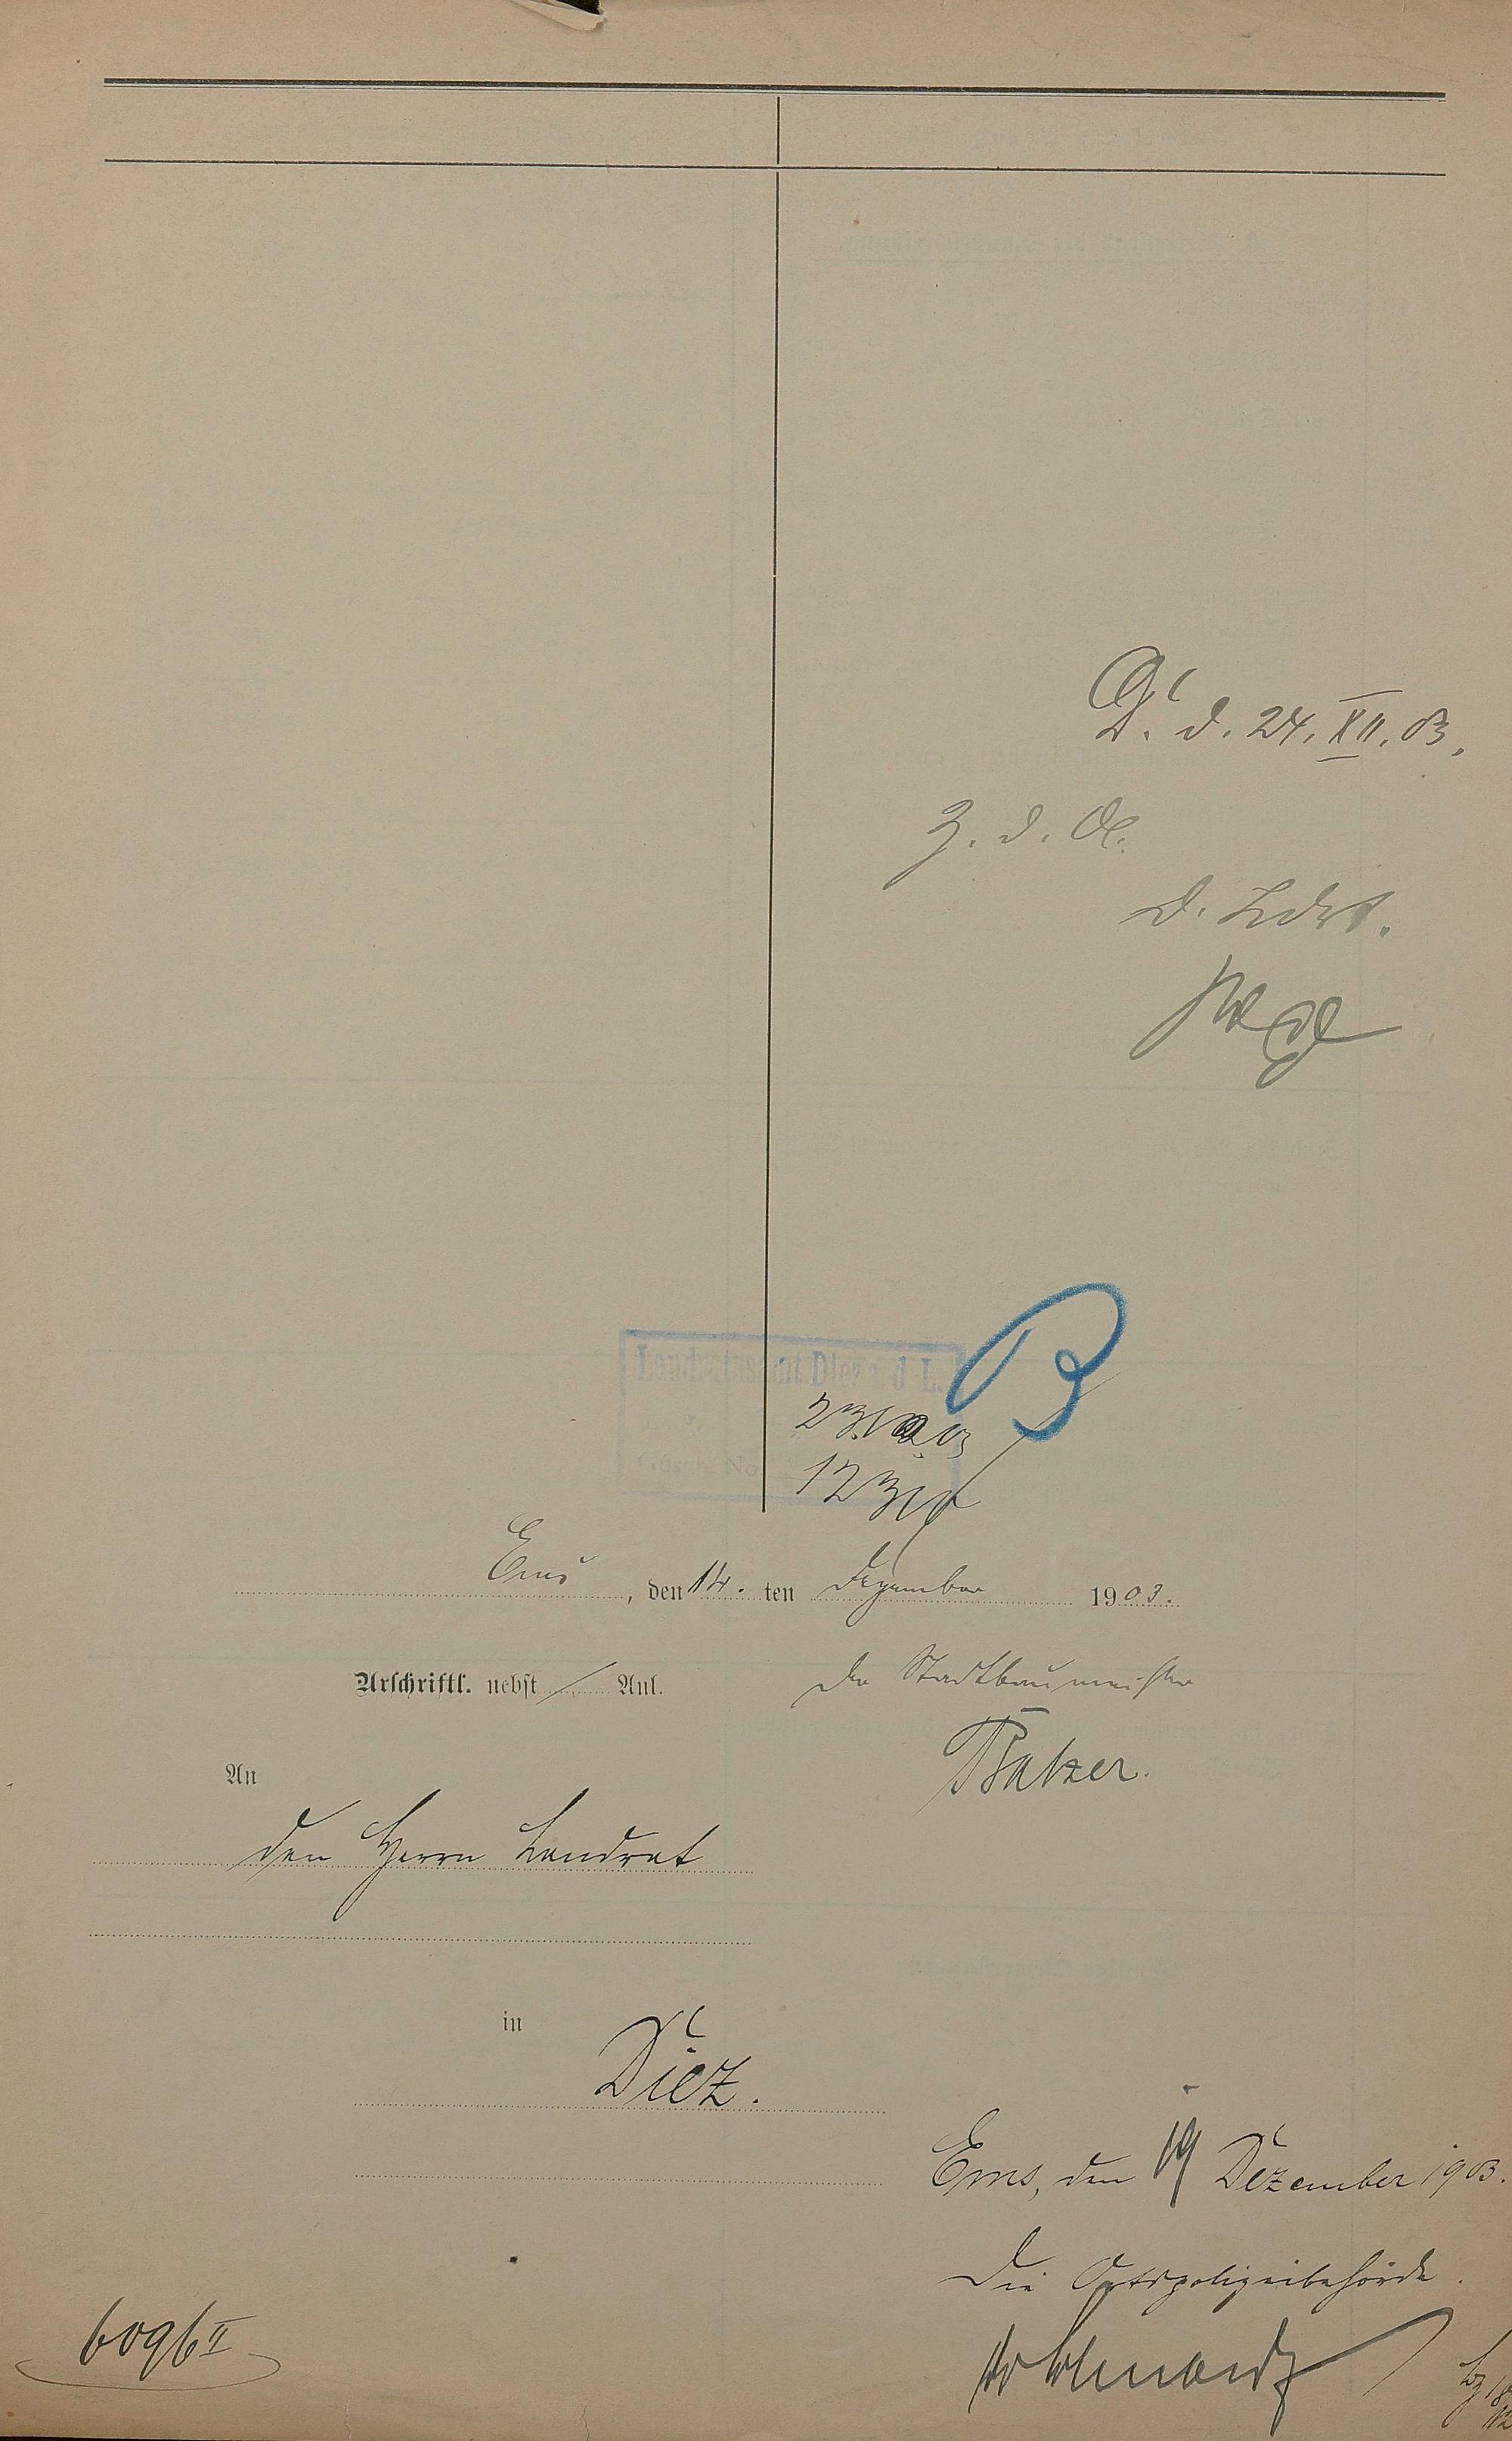 D. d. 24. XII. 03.
Z. d. A.
D. Ldrt.
B
Landratsamt Diez a. d. L.
23. 12. 03
Gesch. No.
Ems, den 14. ten Dezember 1903.
Urschriftl. nebst / Anl.
Der Stadtbaumeister
Balzer.
An
den Herrn Landrat
in
Diez.
Ems, den 19 Dezember 1903.
Die Ortspolizeibehörde.
6096 II
18/12